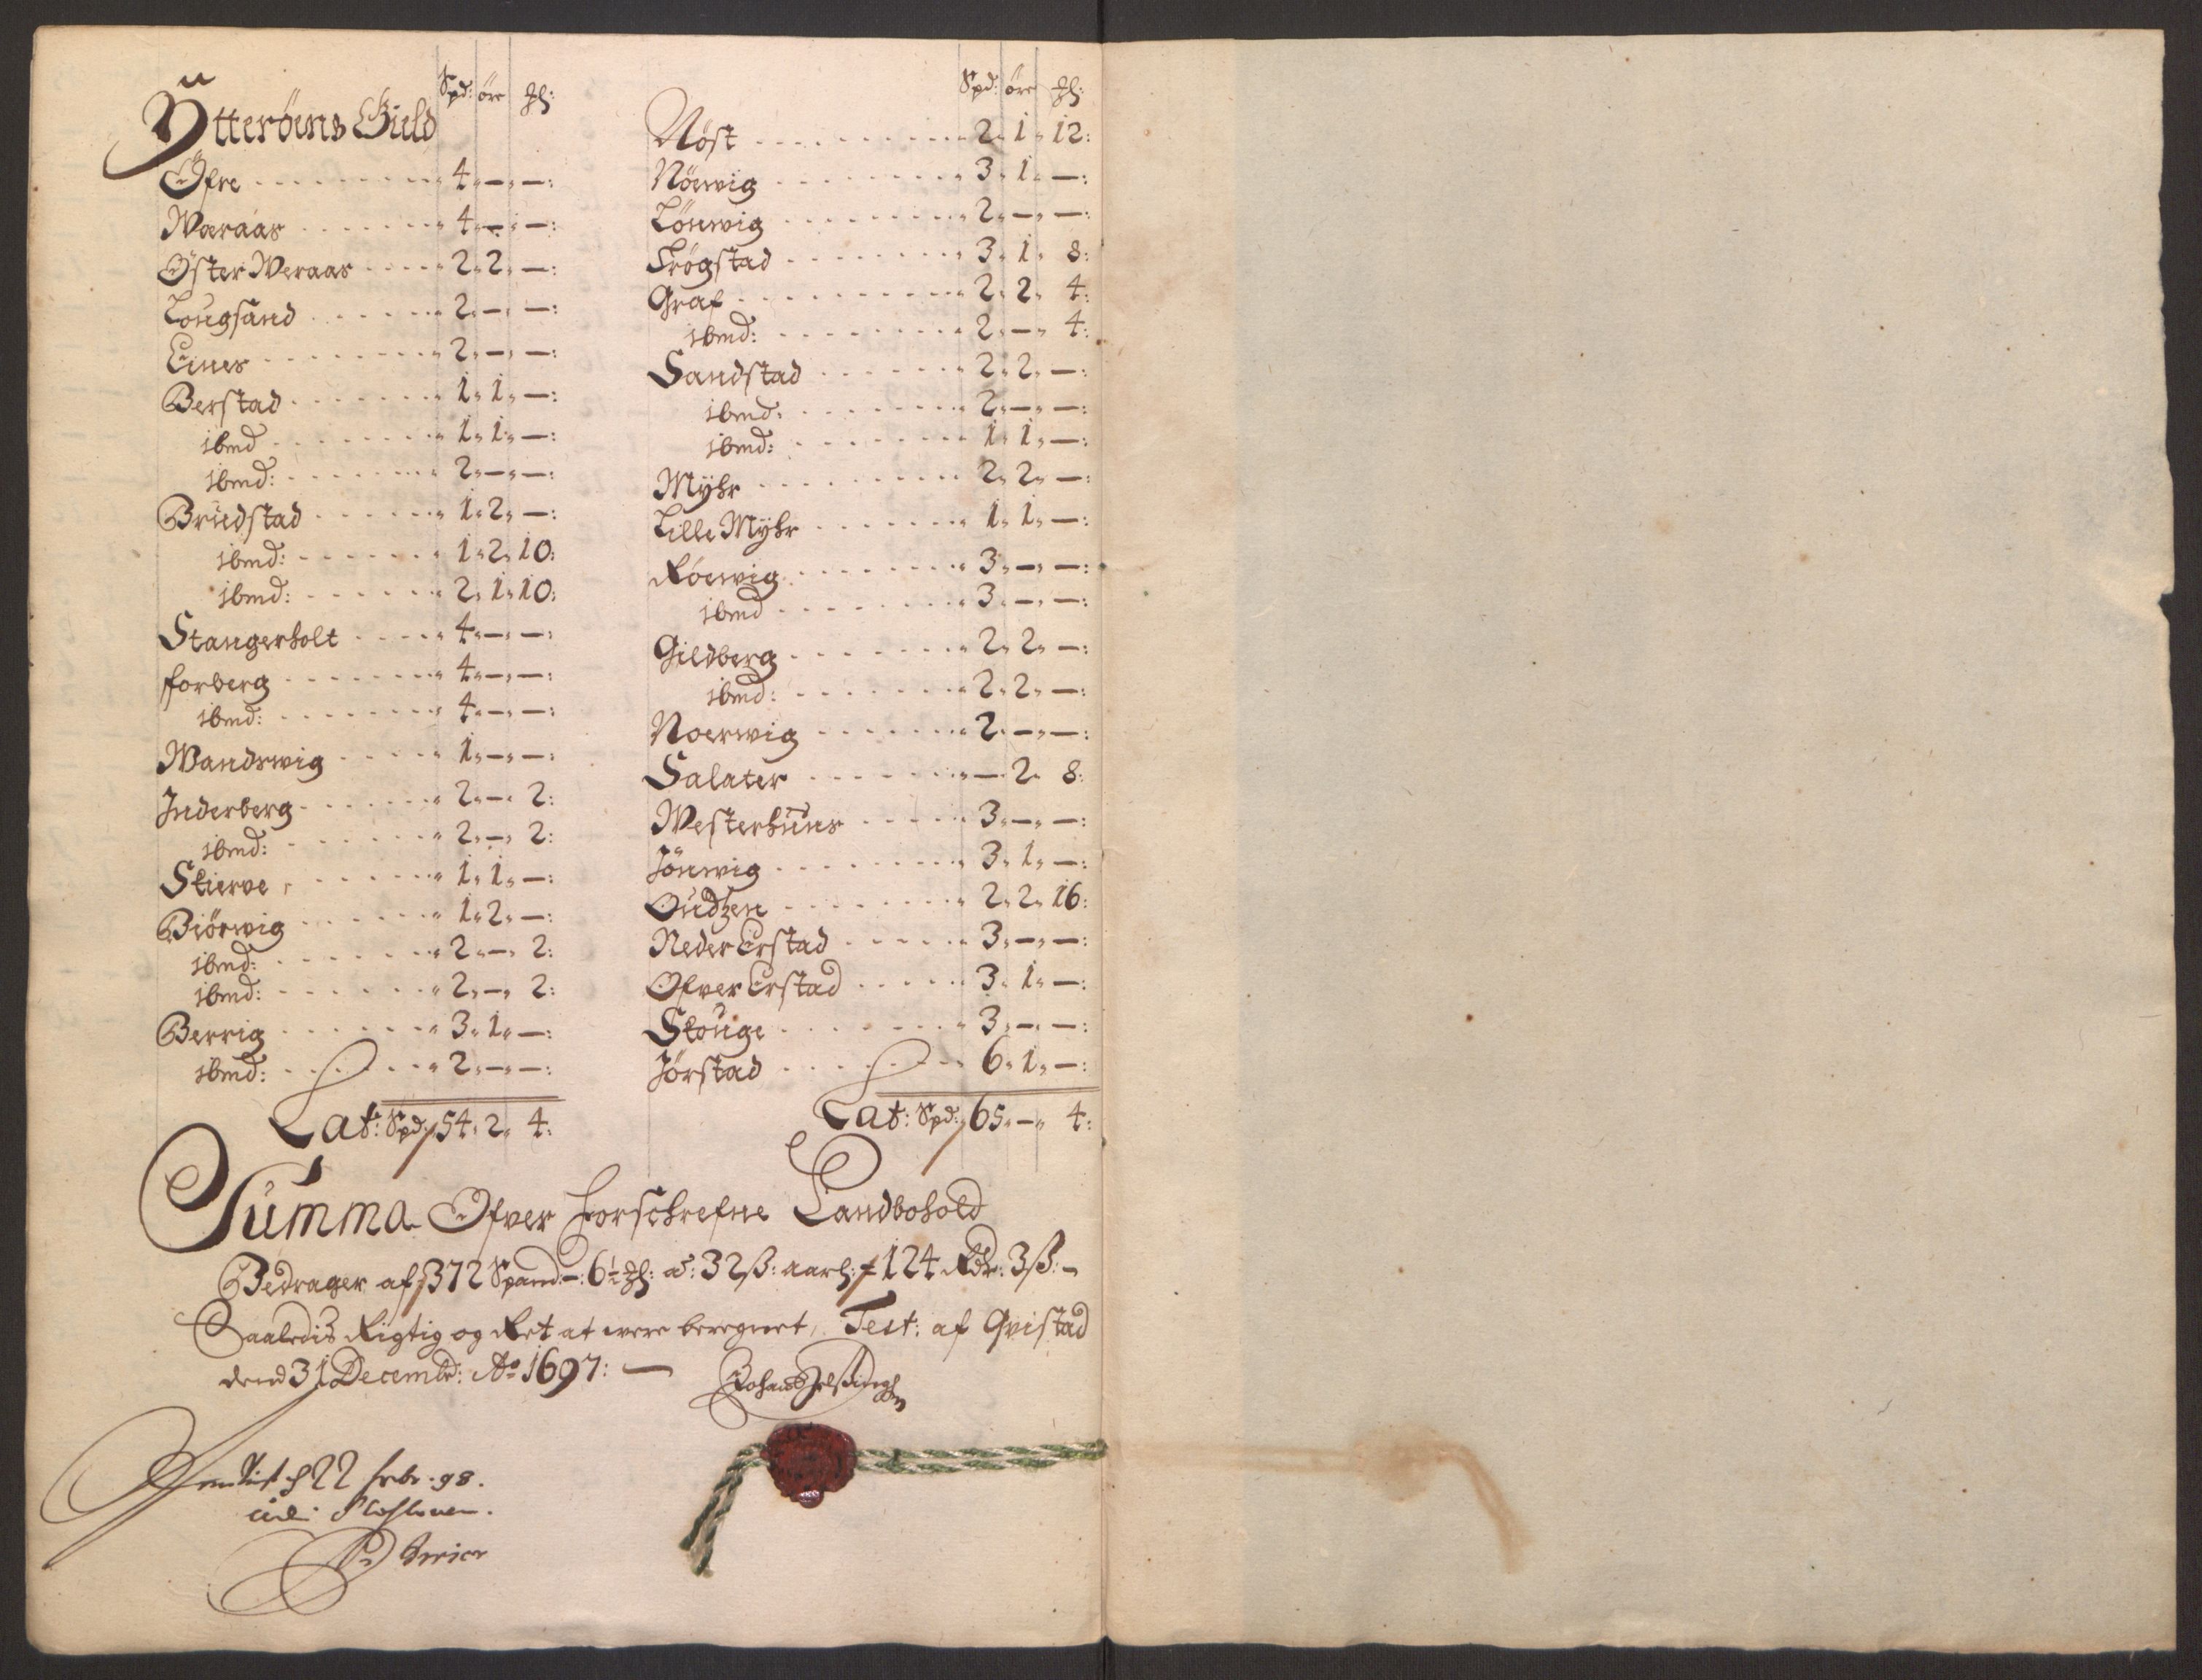 Spd: öre
Ÿtteröens Gield
Öfre 4 – –:
Weraas 4 – –:
Öster Weraas 2 2 –:
Lougsand 2 – –:
Eines 2 – –:
Berstad 1 1 –:
ibmd 1 1 –:
ibmd: 2 – –:
Brudstad 1 2 –:
ibmd: 1 2 10:
ibmd: 2 1 10:
Stangerholt 4 – –:
forberg 4 – –:
ibmd: 4 – –:
Wandswig 1 – –:
Inderberg 2 – 2:
ibmd: 2 – 2:
Stierve 1 1 –:
Biörwig 1 2 –:
ibmd: 2 – 2:
ibmd: 2 – 2:
Berrig 3 1 –:
ibmd: 2 – –:
Lat: Spd: 54 2 4:
Spd: öre
Nöst 2 1 12:
Nöewig 3 1 –:
Lönwig 2 – –:
Frögstad 3 1 8:
Graf 2 2 4:
ibmd: 2 – 4:
Sandstad 2 2 –:
ibmd: 2 – –:
ibmd: 1 1 –:
Mÿhr 2 2 –:
Lille Mÿhr 1 1 –:
Röewig 3 – –:
ibmd 3 – –:
Gildberg 2 2 –:
ibmd: 2 2 –:
Noerwig 2 – –:
Salater – 2 8:
Westerhuus 3 – –:
Jönwig 3 1 –:
Oudzen 2 2 16:
Neder Erstad 3 – –:
Ofver Erstad 3 1 –:
Skouge 3 – –:
Jörstad 6 1 –:
Lat: Spd: 65 – 4:
Summa Ofver forschrefne Landbohold
Bedrager af 372 Spand –: 6½ a: 32 ß: aarl: 124 Rdr: 3 ß: –
Saaledis Rigtig og Ret at were beregnet, Test: af Qvistad
dend 31 Decembr: Ao 1697: –
22 febr. 98.